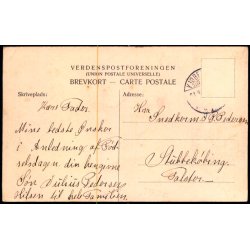 VERDENSPOSTFORENINGEN
(UNION POSTALE UNIVERSELLE)
BREVKORT — CARTE POSTALE
Skriveplads:
Adresse:
Kære Fader.
Mine bedste Ønsker
i Anledning af Fød
selsdagen din hengivne
Søn Julius Pedersen
Hilsen til hele Familien.
Hr. Snedkerm Pedersen
Stubbekøbing.
Falster.